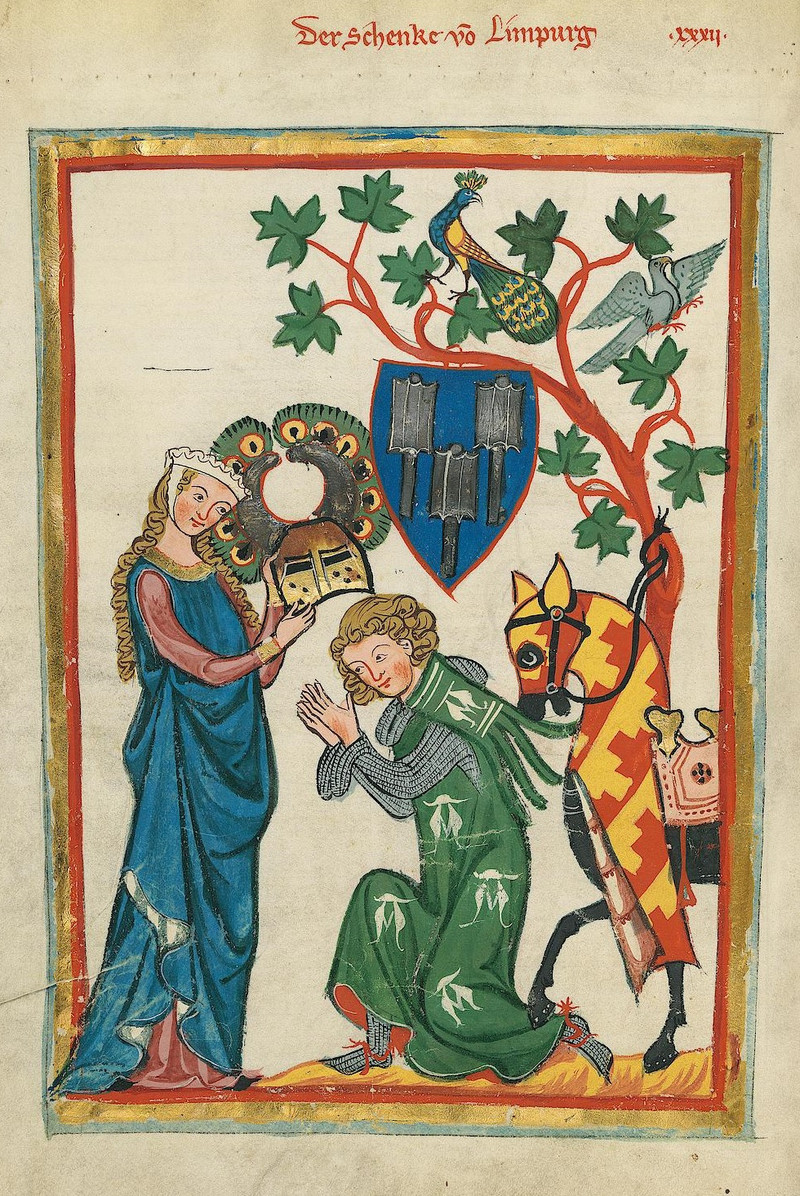 Der Schenke vō Limpurg ·xxxij·